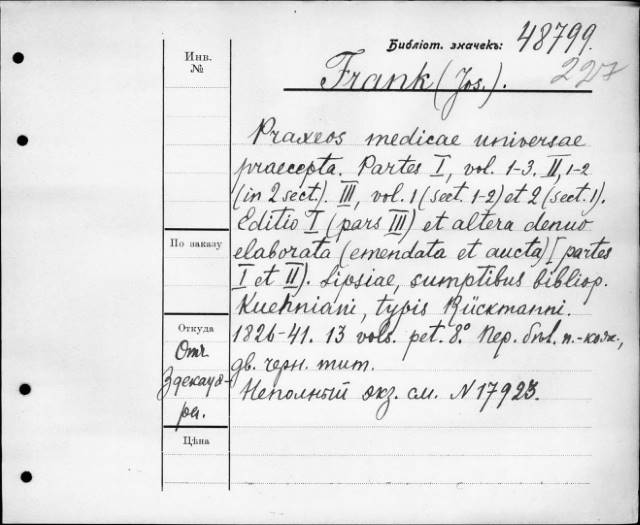 Библіот. значекъ: 48799.
227
Инв.
№
Frank (Jos.).
Praxeos medicae universae
praecepta. Partes I, vol. 1-3. II, 1-2
(in 2 sect.). III, vol. 1 (sect. 1-2) et 2 (sect. 1).
Editio I (pars III) et altera denuo
По заказу
elaborata (emendata et aucta) [partes
I et II). Lipsiae, sumptibus bibliop.
Kuehniani, typis Rückmanni.
Откуда
1826-41. 13 vols. pet. 8° Пер. бѣл. п.-кож.,
Отъ
дв. черн. тит.
Здекауе-
ра.
Неполный экз. см. N 17923.
Цѣна